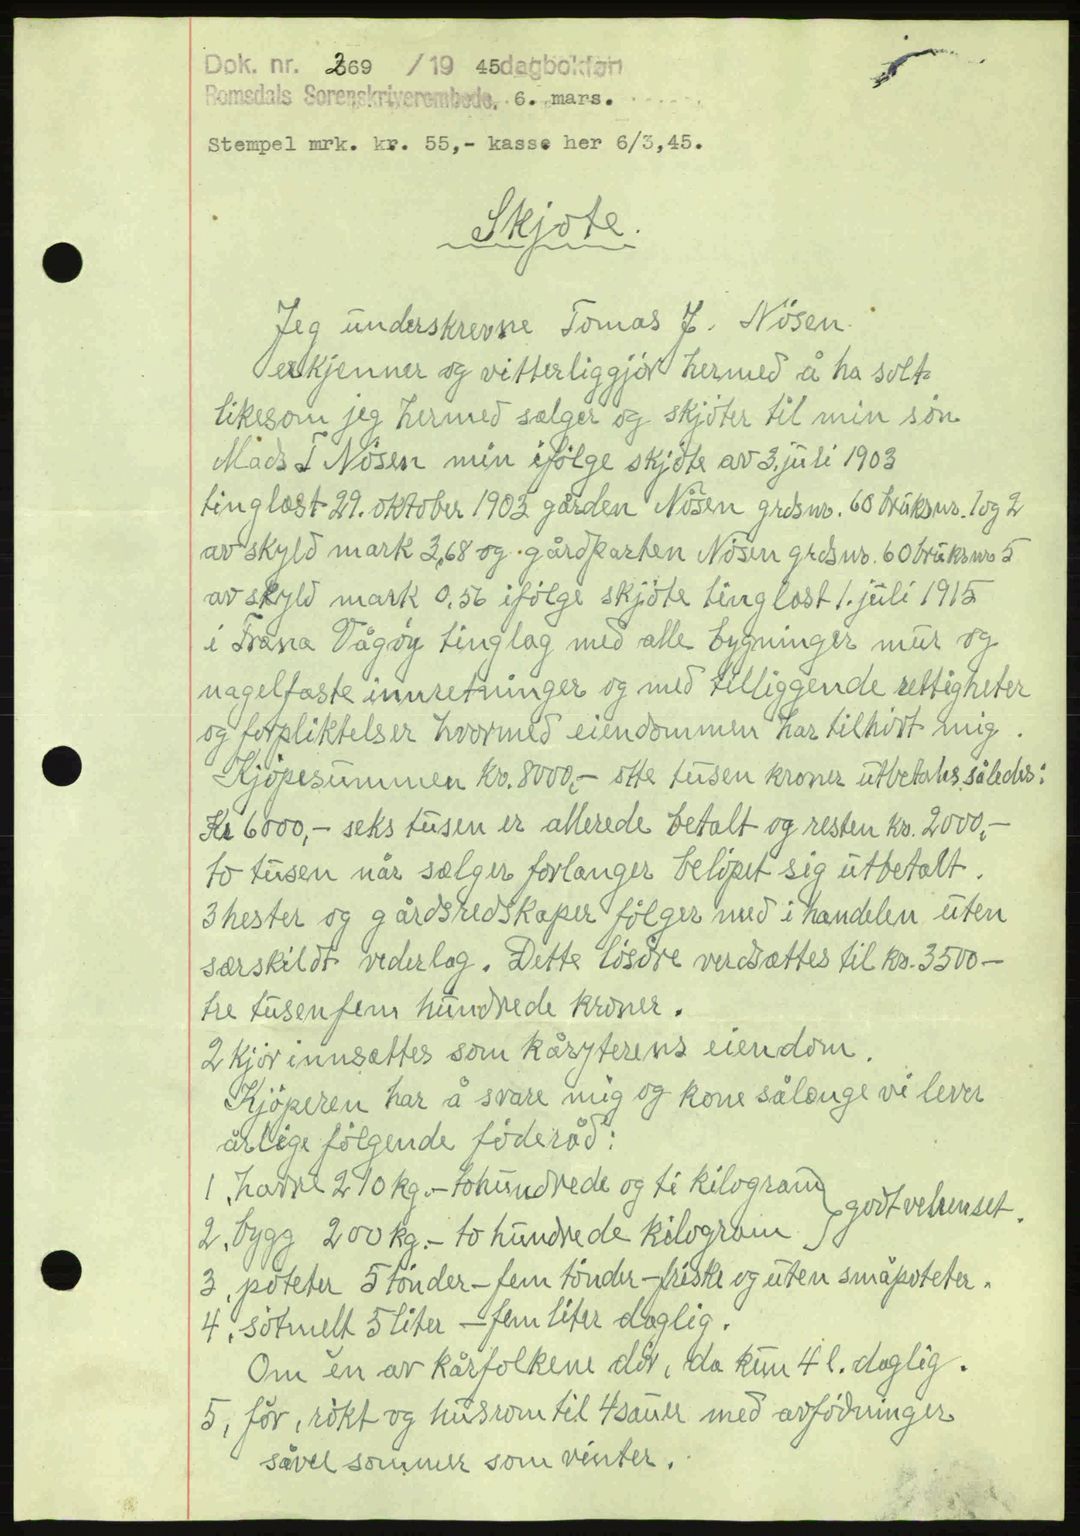 Dok. nr. 269 /19 45 dagbokført
Romsdals Sorenskriverembede, 6. mars.
Stempel mrk. kr. 55,- kasse her 6/3,45.
Skjøte.
Jeg underskrevne Tomas J. Nösen
erkjenner og vitterliggjör hermed å ha solt
likesom jeg hermed sælger og skjöter til min sön
Mads T Nösen min ifölge skjöte av 3. juli 1903
tinglæst 29. oktober 1903 gården Nösen grdsnr. 60 bruksnr. 1 og 2
av skyld mark 3,68 og gårdparten Nösen grdsnr. 60 bruksnr 5
av skyld mark 0.56 ifölge skjöte tinglæst 1. juli 1915
i Fræna Vågöy tinglag med alle bygninger mur og
nagelfaste innretninger og med tilliggende rettigheter
og forpliktelser hvormed eiendommen har tilhört mig.
Kjöpesummen kr. 8000,- otte tusen kroner utbetales således:
Kr 6000,- seks tusen er allerede betalt og resten kr. 2000,-
to tusen når sælger forlanger belöpet sig utbetalt.
3 hester og gårdsredskaper fölger med i handelen uten
særskildt vederlag. Dette lösöre verdsættes til kr. 3500-
tre tusen fem hundrede kroner.
2 kjör innsættes som kåryterens eiendom.
Kjöperen har å svare mig og kone sålænge vi lever
årlige fölgende föderåd:
1, havre 210 kg.- tohundrede og ti kilogram
2, bygg 200 kg.- to hundrede kilogram } godt velrenset.
3, poteter 5 tönder - fem tönder - friske og uten småpoteter.
4, sötmelk 5 liter - fem liter daglig.
Om en av kårfolkene dör, da kun 4 l. daglig.
5, fór, rökt og husrom til 4 sauer med avfödninger
såvel sommer som vinter.